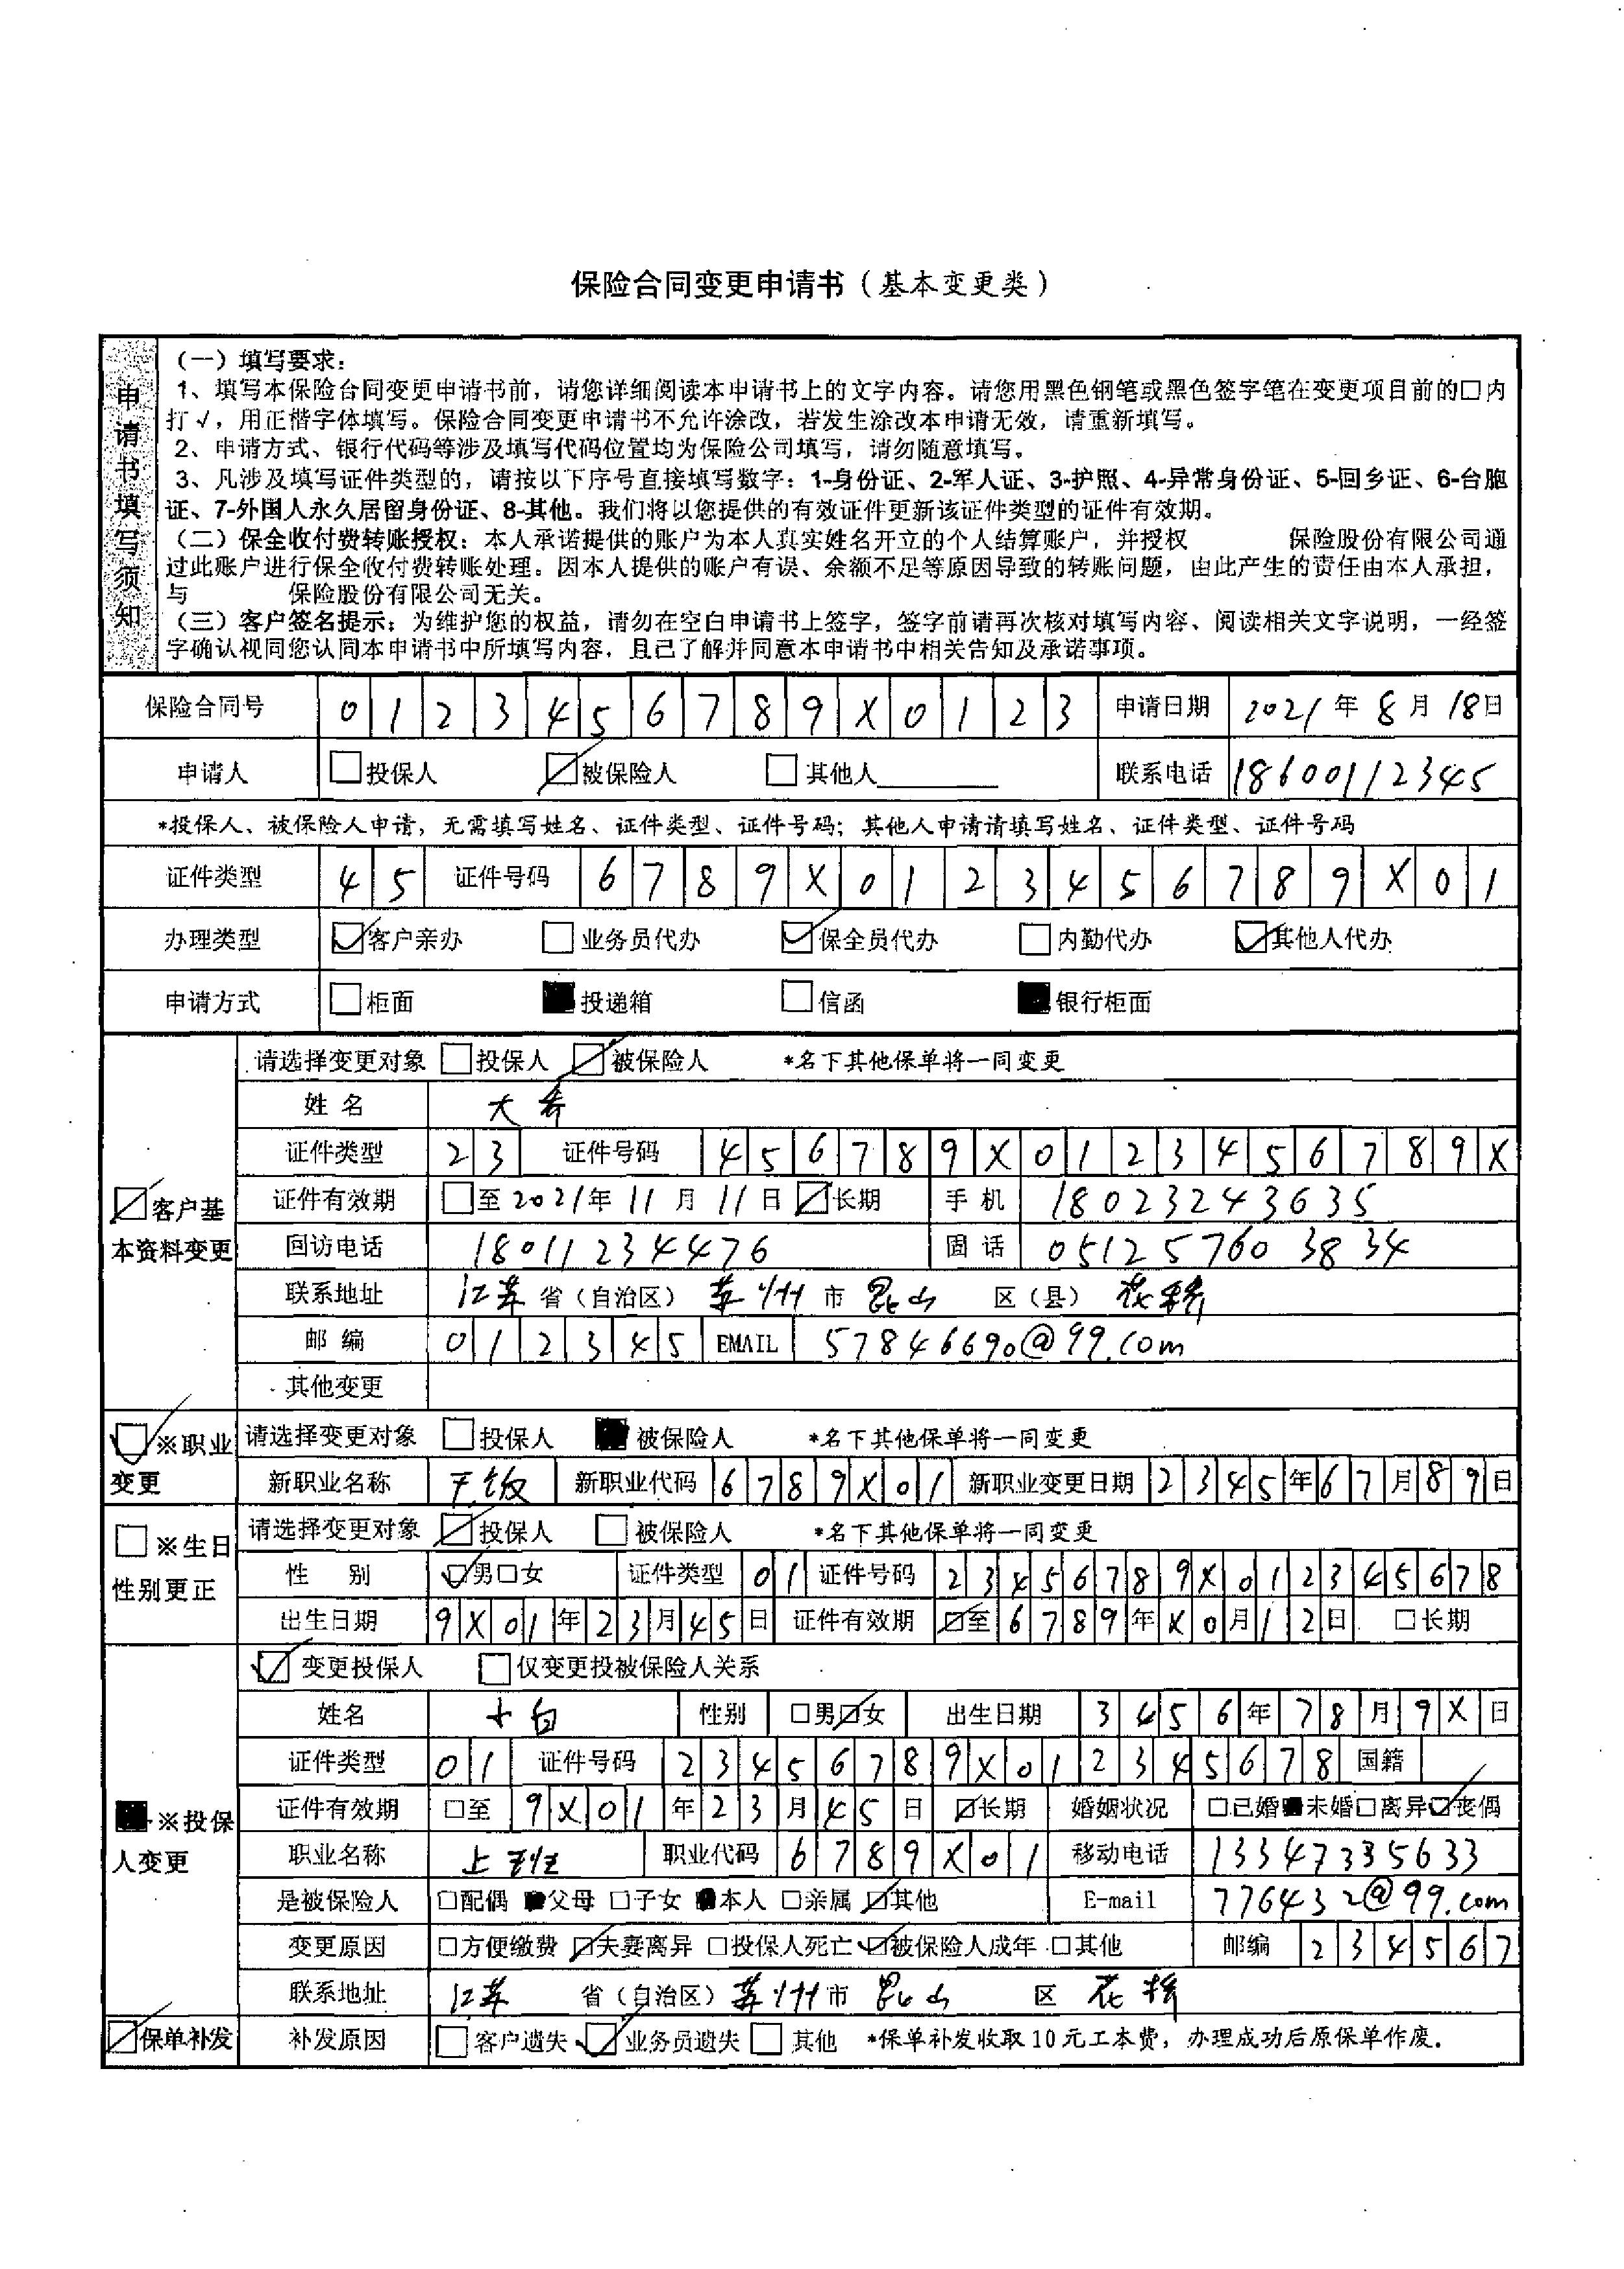 保险合同变更申请书（基本变更类）
申请书填写须知
（一）填写要求：
1、填写本保险合同变更申请书前，请您详细阅读本申请书上的文字内容。请您用黑色钢笔或黑色签字笔在变更项目前的□内
打√，用正楷字体填写。保险合同变更申请书不允许涂改，若发生涂改本申请无效，请重新填写。
2、申请方式、银行代码等涉及填写代码位置均为保险公司填写，请勿随意填写。
3、凡涉及填写证件类型的，请按以下序号直接填写数字：1-身份证、2-军人证、3-护照、4-异常身份证、5-回乡证、6-台胞
证、7-外国人永久居留身份证、8-其他。我们将以您提供的有效证件更新该证件类型的证件有效期。
（二）保全收付费转账授权：本人承诺提供的账户为本人真实姓名开立的个人结算账户，并授权 保险股份有限公司通
过此账户进行保全收付费转账处理。因本人提供的账户有误、余额不足等原因导致的转账问题，由此产生的责任由本人承担，
与 保险股份有限公司无关。
（三）客户签名提示：为维护您的权益，请勿在空白申请书上签字，签字前请再次核对填写内容、阅读相关文字说明，一经签
字确认视同您认同本申请书中所填写内容，且已了解并同意本申请书中相关告知及承诺事项。
保险合同号 0123456789X0123 申请日期 2021年8月18日
申请人 □投保人 ☑被保险人 □其他人 联系电话 18600112345
*投保人、被保险人申请，无需填写姓名、证件类型、证件号码；其他人申请请填写姓名、证件类型、证件号码
证件类型 45 证件号码 6789X0123456789X01
办理类型 ☑客户亲办 □业务员代办 ☑保全员代办 □内勤代办 ☑其他人代办
申请方式 □柜面 ■投递箱 □信函 ■银行柜面
☑客户基本资料变更
请选择变更对象 □投保人 ☑被保险人 *名下其他保单将一同变更
姓名 大乔
证件类型 23 证件号码 456789X0123456789X
证件有效期 □至2021年11月11日 ☑长期 手机 18023243635
回访电话 18011234476 固话 051257603834
联系地址 江苏省（自治区）苏州市昆山 区（县） 花桥
邮编 012345 EMAIL 57846690@99.com
其他变更
☑※职业变更
请选择变更对象 □投保人 ■被保险人 *名下其他保单将一同变更
新职业名称 干饭 新职业代码 6789X01 新职业变更日期 2345年67月89日
□※生日性别更正
请选择变更对象 ☑投保人 □被保险人 *名下其他保单将一同变更
性别 ☑男□女 证件类型 01 证件号码 23456789X012345678
出生日期 9X01年23月45日 证件有效期 ☑至6789年X0月12日 □长期
■※投保人变更
☑变更投保人 □仅变更投被保险人关系
姓名 小白 性别 □男☑女 出生日期 3456年78月9X日
证件类型 01 证件号码 23456789X012345678 国籍
证件有效期 □至 9X01年23月45日 ☑长期 婚姻状况 □已婚■未婚□离异☑丧偶
职业名称 上班 职业代码 6789X01 移动电话 13347335633
是被保险人 □配偶 ■父母 □子女 ■本人 □亲属 ☑其他 E-mail 776432@99.com
变更原因 □方便缴费 ☑夫妻离异 □投保人死亡 ☑被保险人成年 □其他 邮编 234567
联系地址 江苏 省（自治区）苏州市 昆山 区 花桥
☑保单补发 补发原因 □客户遗失 ☑业务员遗失 □其他 *保单补发收取10元工本费，办理成功后原保单作废。